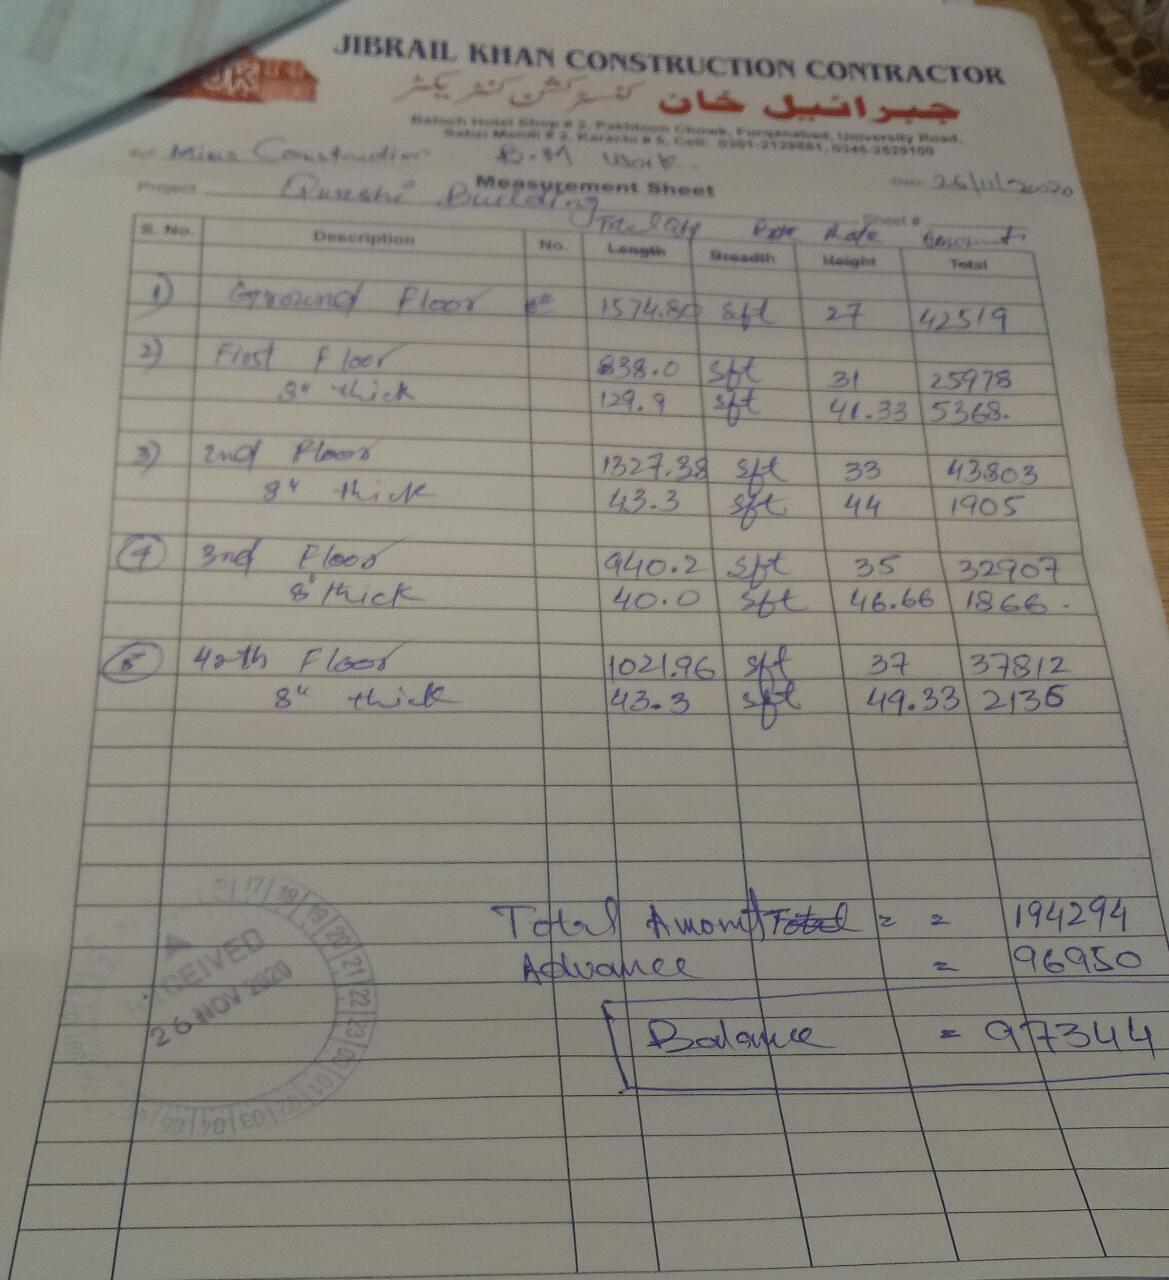 JIBRAIL KHAN CONSTRUCTION CONTRACTOR
JK
جبرائیل خان کنسٹرکشن کنٹریکٹر
Baloch Hotel Shop # 2, Pakhtoon Chowk, Furqanabad, University Road,
Sabzi Mandi # 2, Karachi # 5, Cell:
Construction B.M work.
Measurement Sheet
Date: 25/11/2020
Project Qureshi Building
Sheet #
Total Qty Rate Amount
S. No. Description No. Length Breadth Height Total
1) Ground Floor 1574.80 sft 27 42519
2) First Floor 838.0 sft 31 25978
8" thick 129.9 sft 41.33 5368.
3) 2nd Floor 1327.38 sft 33 43803
8" thick 43.3 sft 44 1905
4 3nd Floor 940.2 sft 35 32907
8" thick 40.0 sft 46.66 1866.
5 4rth Floor 1021.96 sft 37 37812
8" thick 43.3 sft 49.33 2136
Total Amont Total = = 194294
Advance = 96950
Balance = 97344
RECEIVED
26 NOV 2020
17 18 19 20 21 22 23 00 01 02 03 04 05